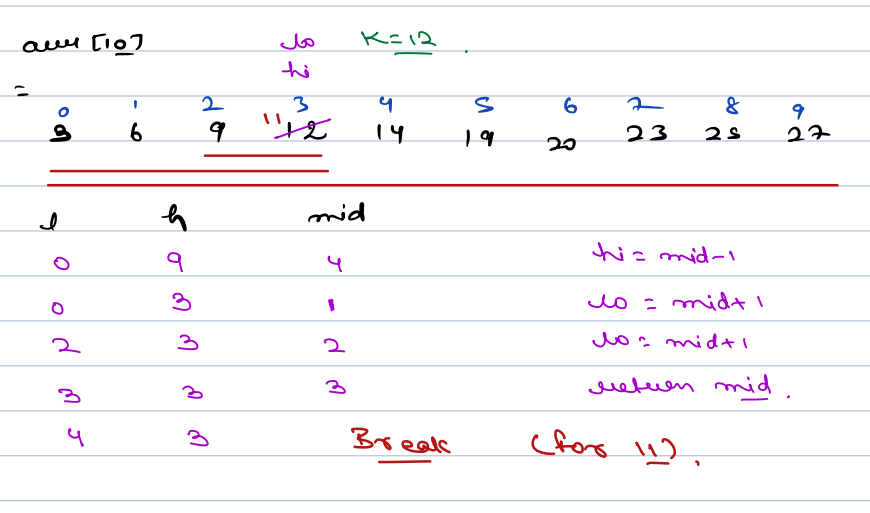 arr [10] lo K=12 .
= hi
0 1 2 3 4 5 6 7 8 9
3 6 9 11 12 14 19 20 23 25 27
l h mid
0 9 4 hi = mid-1
0 3 1 lo = mid+1
2 3 2 lo = mid+1
3 3 3 return mid .
4 3 Break (for 11) .